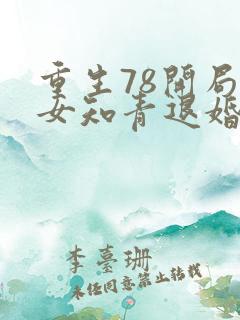 重生78開局
女知青退婚
李臺珊
未经同意禁止转载